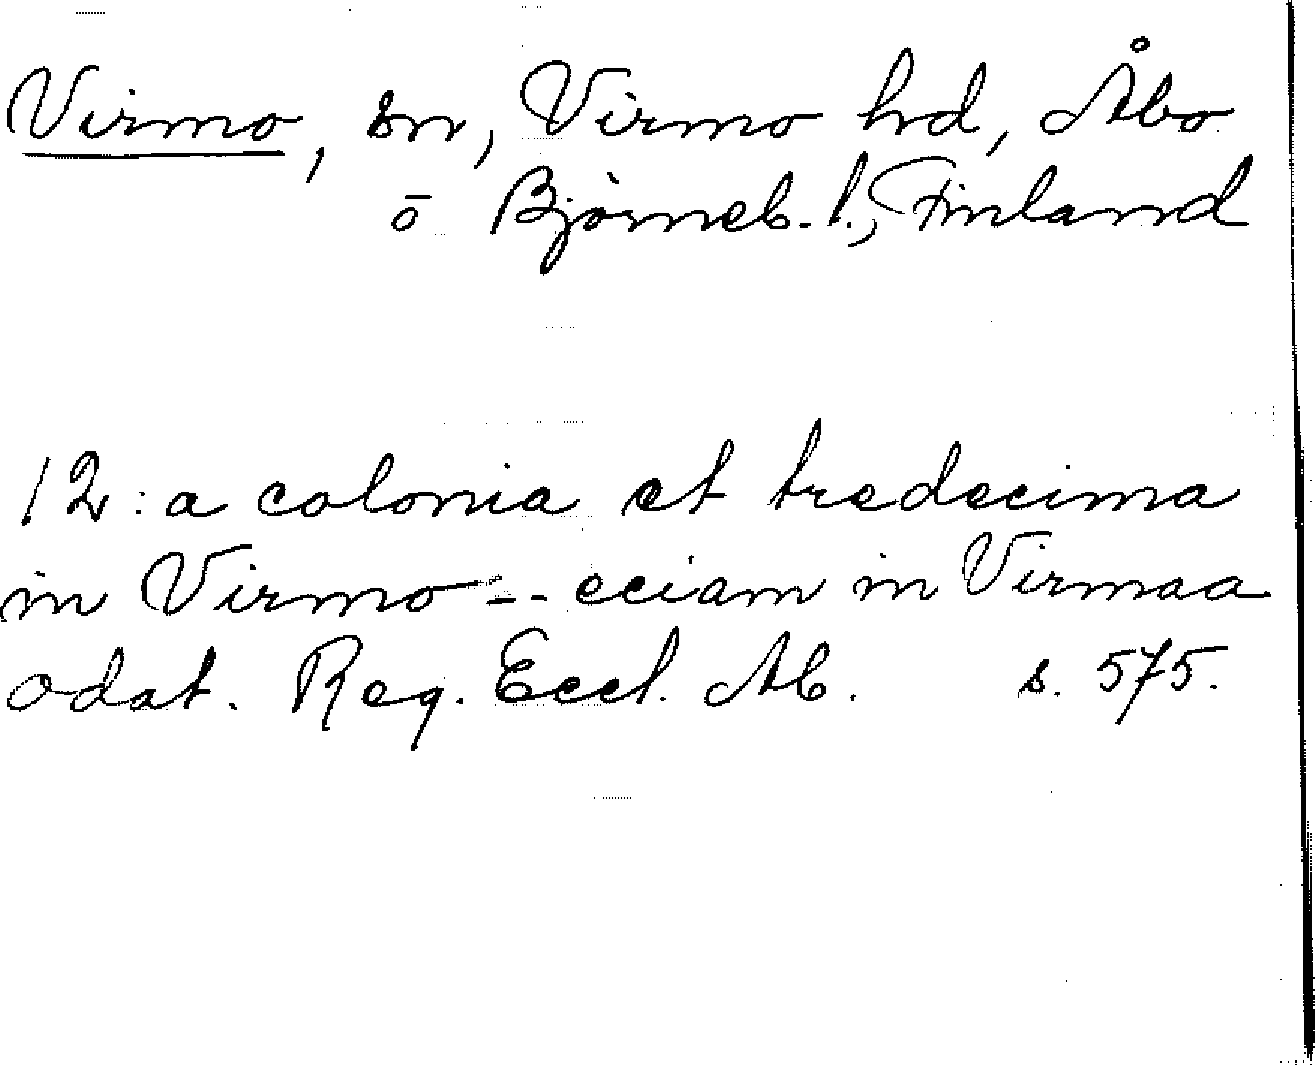 Virmo, sn, Virmo hd, Åbo
o Björneb. l., Finland
12: a colonia et tredecima
in Virmo -- eciam in Virmaa
odat. Reg. Eccl. Ab. s. 575.